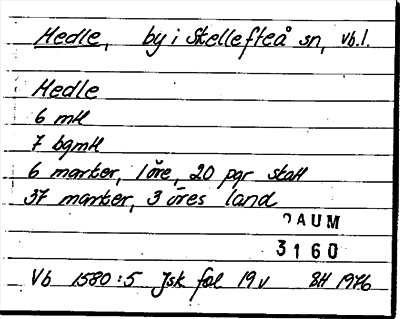 Medle, by i Skellefteå sn, Vb.l.
Medle
6 mtl
7 bgmtl
6 marker, 1 öre, 20 pgr skatt
37 marker, 3 öres land
DAUM
3160
Vb 1580:5 Jsk fol 19v BH 1976